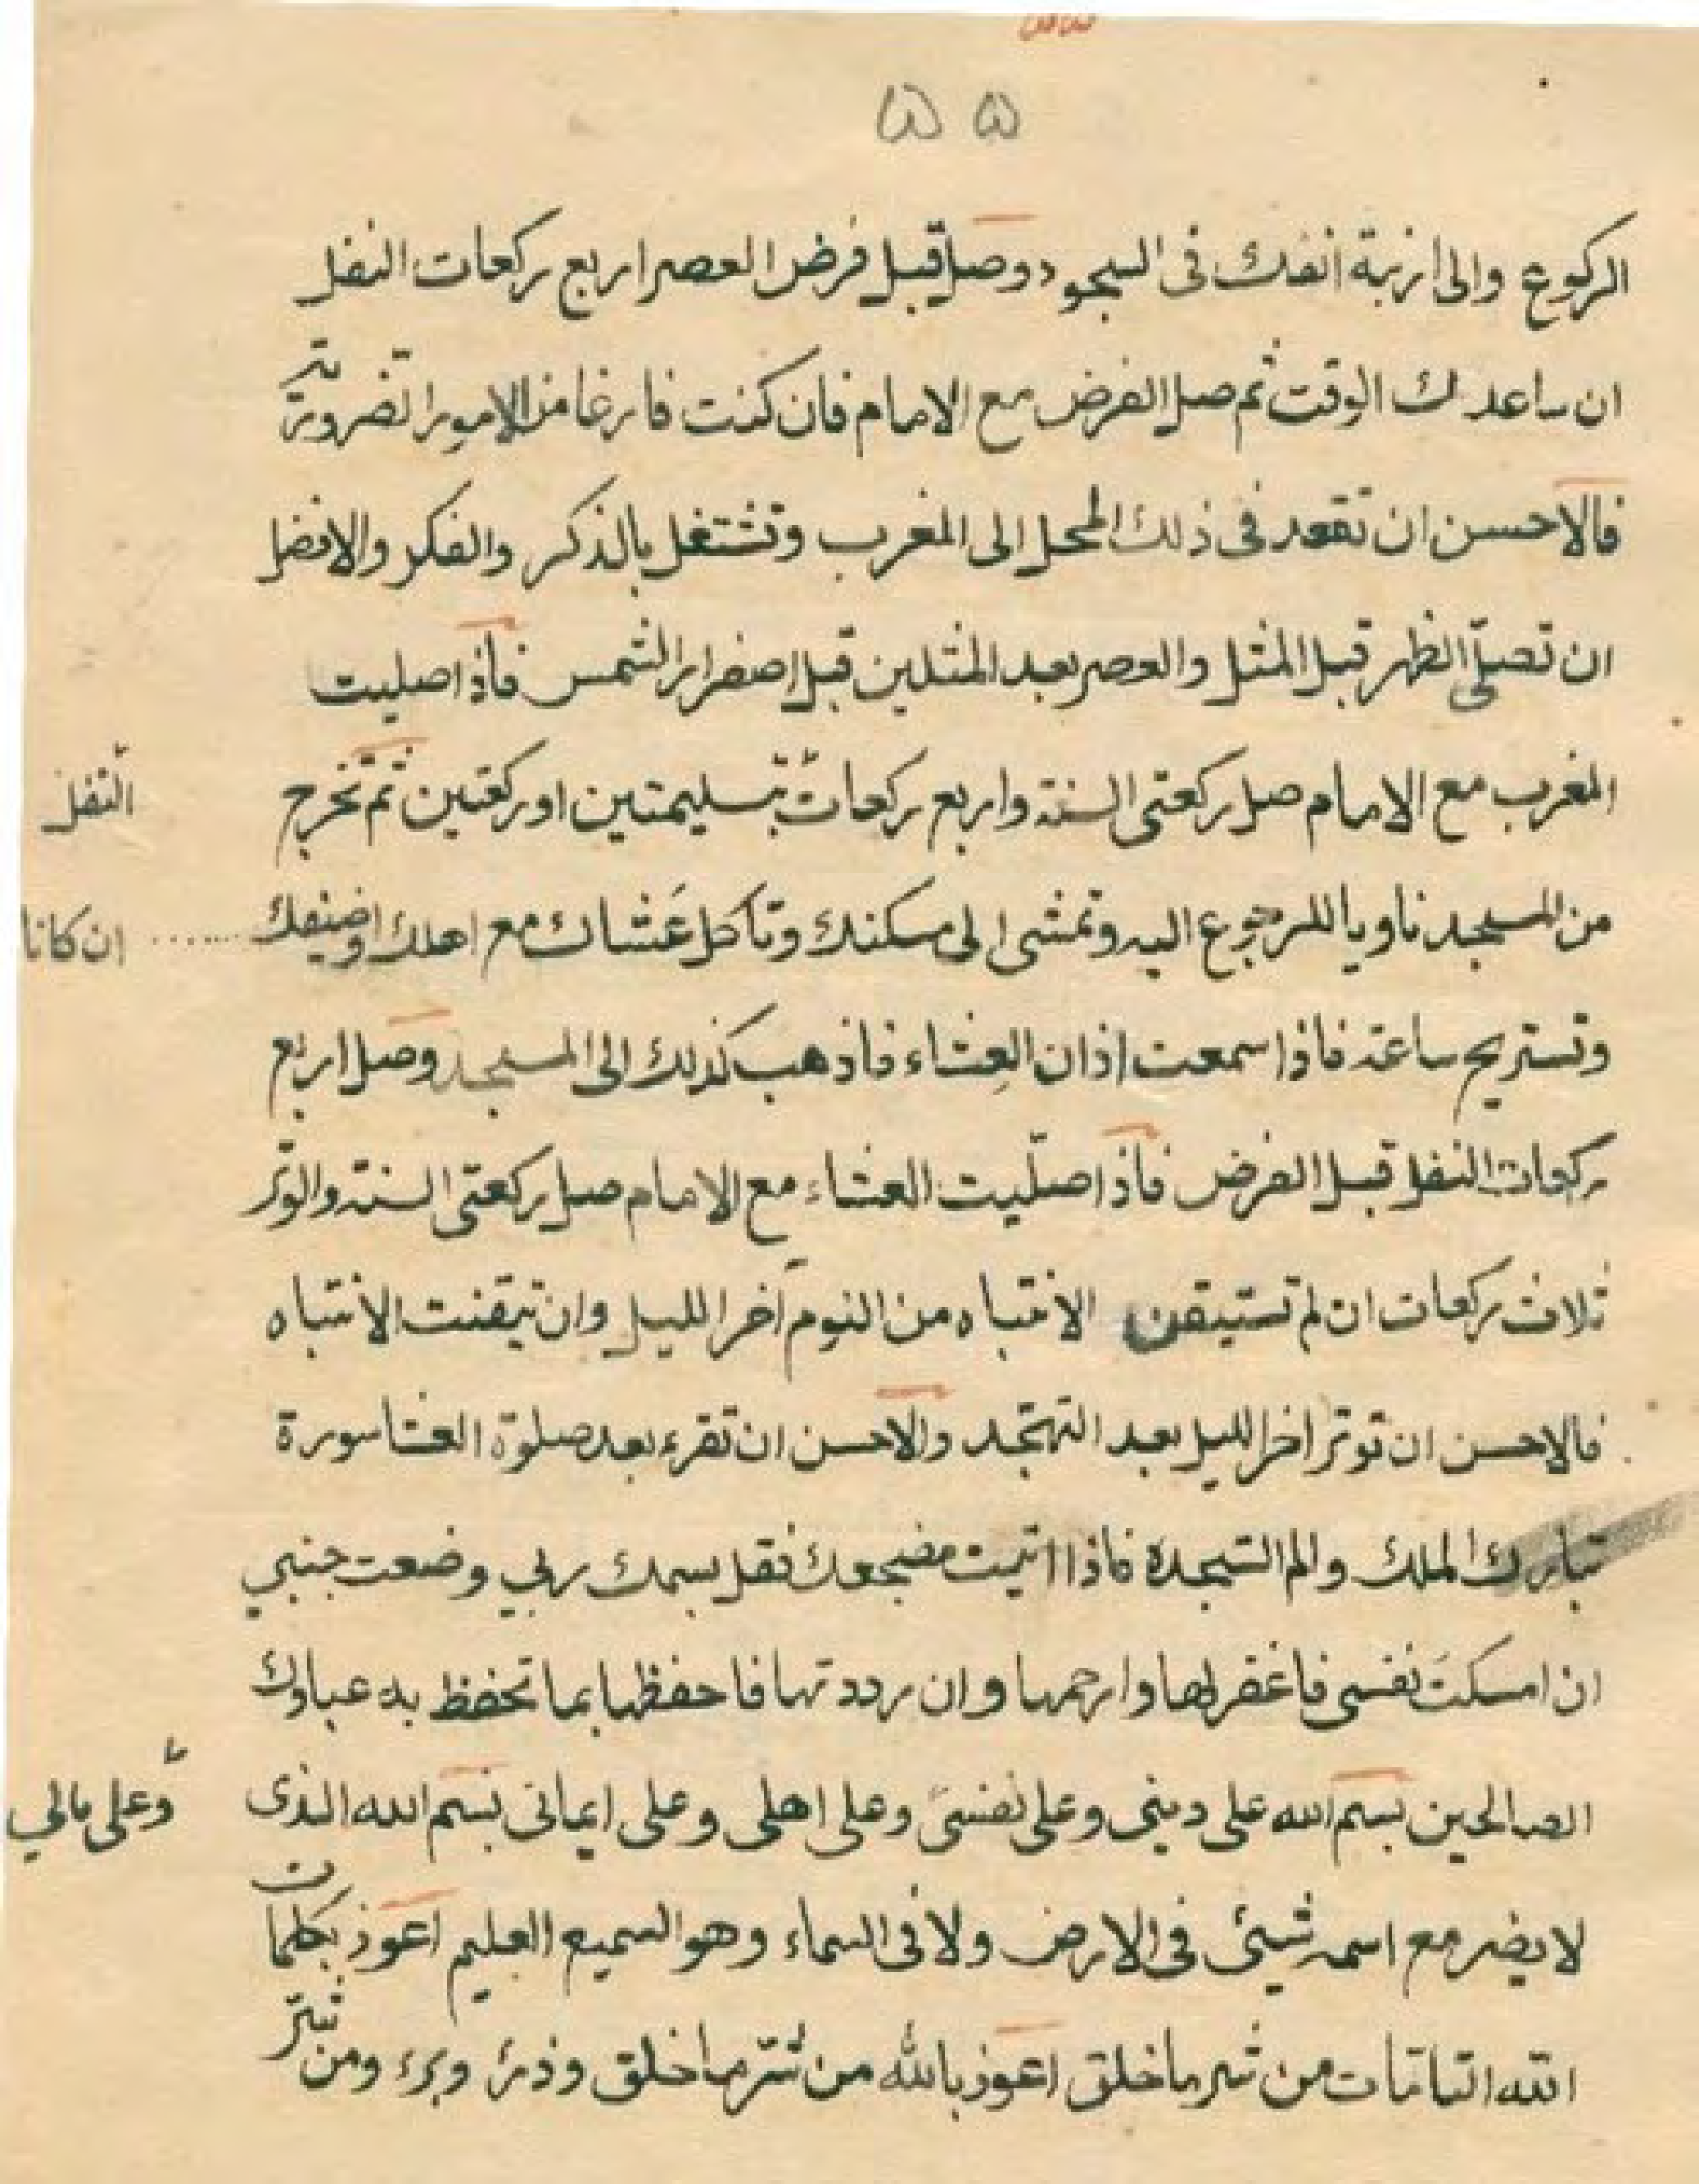 ۵۵
الركوع والى ارنبة انفك فى السجود وصل قبل فرض العصر اربع ركعات النفل
ان ساعدك الوقت ثم صل الفرض مع الامام فان كنت فارغا من الامور الضرورية
فالاحسن ان تقعد فى ذلك المحل الى المغرب وتشتغل بالذكر والفكر والافضل
ان تصلّى الظهر قبل المثل والعصر بعد المثلين قبل اصفرار الشمس فاذا صليت
المغرب مع الامام صل ركعتى السنة واربع ركعات بتسليمتين او ركعتين ثم تخرج
النفل
من المسجد ناويا للرجوع اليه وتمشى الى مسكنك وتاكل عَشاك مع اهلك وضيفك
ان كانا
وتستريح ساعة فاذا سمعت اذان العِشاء فاذهب كذلك الى المسجد وصل اربع
ركعات النفل قبل الفرض فاذا صلّيت العشاء مع الامام صل ركعتى السنة والوتر
ثلاث ركعات ان لم تستيقن الانتباه من النوم آخر الليل وان تيقنت الانتباه
فالاحسن ان توتر اخر الليل بعد التهجّد والاحسن ان تقرء بعد صلوة العشا سورة
تبارك الملك والم السجدة فاذا اتيت مضجعك فقل بسمك ربي وضعت جنبي
ان امسكتَ نفسى فاغفر لها وارحمها وان رددتها فاحفظها بما تحفظ به عبادك
الصالحين بسم الله على دينى وعلى نفسى وعلى اهلى وعلى ايمانى بسم الله الذى
وعلى مالي
لا يضر مع اسمه شيئ فى الارض ولا فى السماء وهو السميع العليم اعوذ بكلمات
الله التامّات من شر ما خلق اعوذ بالله من شرّ ما خلق وذرئ وبرء ومن شرّ